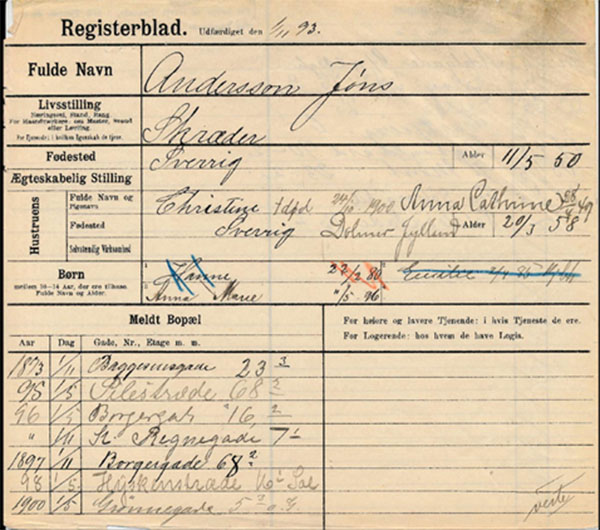 Registerblad. Udfærdiget den 1/11 93.
Fulde Navn
Andersson Jöns
Livsstilling
Næringsvej, Stand, Rang.
For Haandværkere: om Mester, Svend
eller Lærling.
For Tjenende: i hvilken Egenskab de tjene.
Skræder
Fødested Sverrig Alder 11/5 50
Ægteskabelig Stilling
Hustruens
Fulde Navn og
Pigenavn
Christine død 1900 Anna Cathrine
Fødested Sverrig Dolmer Jylland Alder 20/3 58
Selvstendig Virksomhed
Børn
mellem 10-14 Aar, der ere tilhuse.
Fulde Navn og Alder.
1 Hanne 22/2 80
2 Anna Marie 11/5 96
Meldt Bopæl
For høiere og lavere Tjenende: i hvis Tjeneste de ere.
For Logerende: hos hvem de have Logis.
Aar Dag Gade, Nr., Etage m. m.
1893 1/11 Baggesensgade 23 3
95 1/5 Pilestræde 68 2
96 1/5 Borgergade 16 2
" 1/11 St. Regnegade 7 1
1897 1/11 Borgergade 68 2
98 1/5 Hyskenstræde 16 1 Sal
1900 1/5 Grønnegade 5
verte